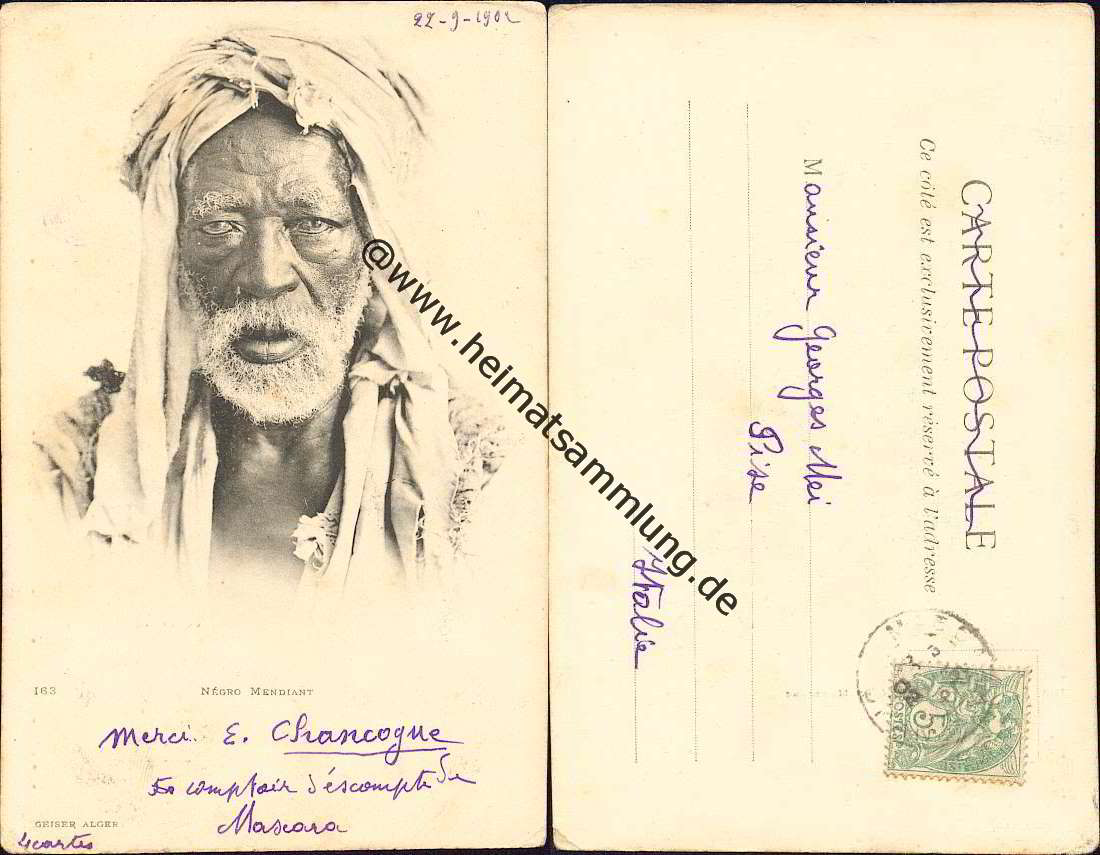 22-9-1902
163
NÉGRO MENDIANT
Merci E. Chancogne
comptoir d'éscompte de
Mascara
GEISER ALGER
4 cartes
@www.heimatsammlung.de
CARTE POSTALE
Ce côté est exclusivement réservé à l'adresse
Monsieur Georges Mei
Pise
Italie
5c
POSTES